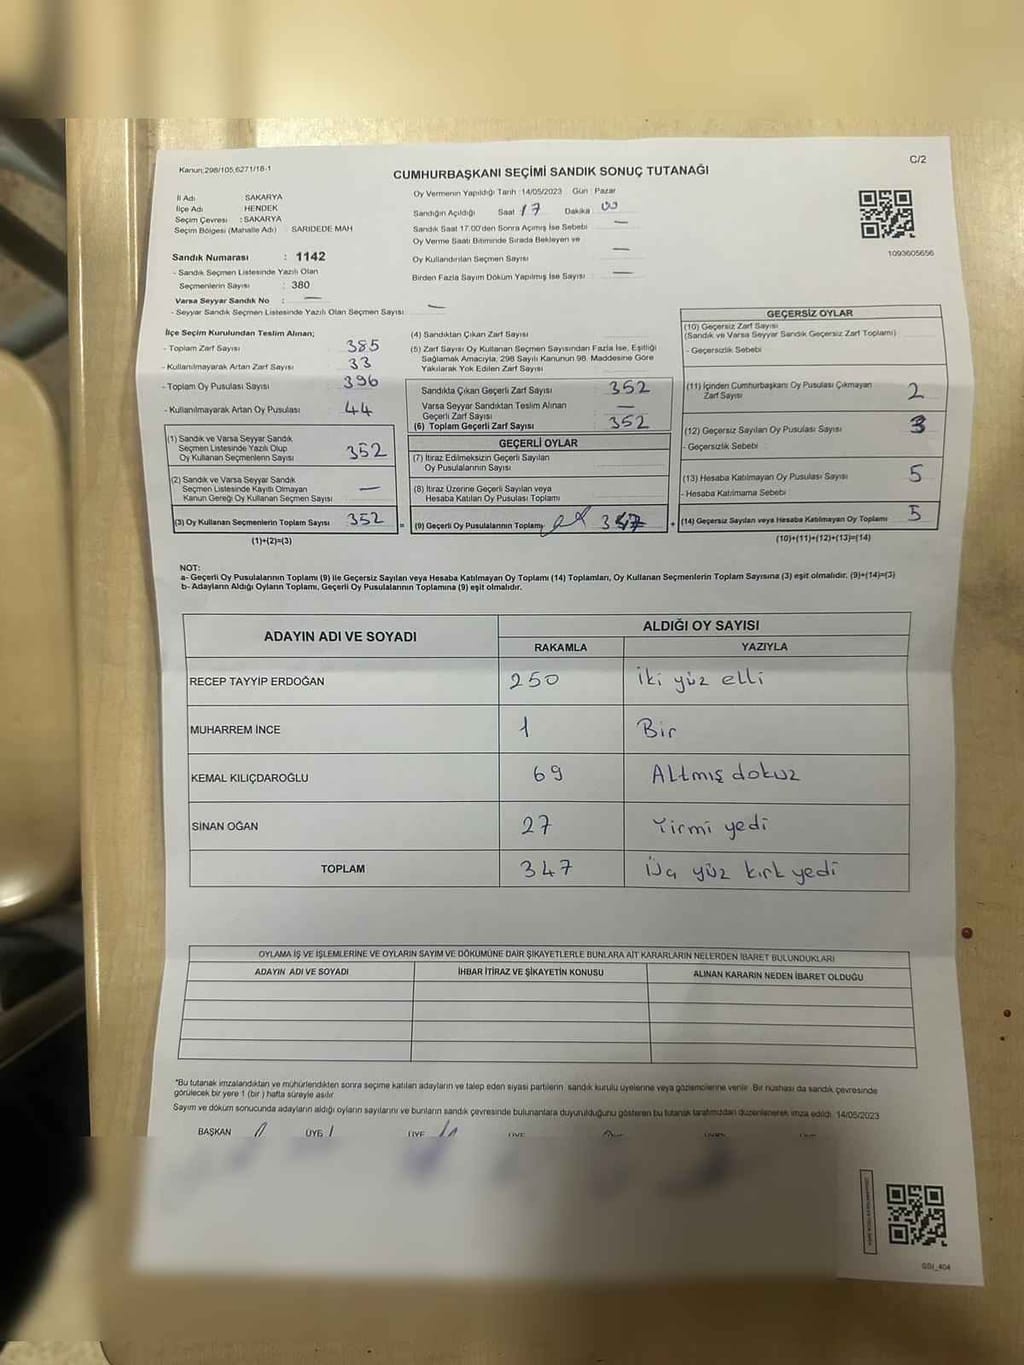 Kanun;298/105,6271/18-1
C/2
CUMHURBAŞKANI SEÇİMİ SANDIK SONUÇ TUTANAĞI
İl Adı : SAKARYA
İlçe Adı : HENDEK
Seçim Çevresi : SAKARYA
Seçim Bölgesi (Mahalle Adı) : SARIDEDE MAH
Sandık Numarası : 1142
- Sandık Seçmen Listesinde Yazılı Olan
Seçmenlerin Sayısı : 380
Varsa Seyyar Sandık No : —
- Seyyar Sandık Seçmen Listesinde Yazılı Olan Seçmen Sayısı : —
Oy Vermenin Yapıldığı Tarih :14/05/2023 Gün : Pazar
Sandığın Açıldığı Saat 17 Dakika 00
Sandık Saat 17.00'den Sonra Açımış İse Sebebi —
Oy Verme Saati Bitiminde Sırada Bekleyen ve
Oy Kullandırılan Seçmen Sayısı —
Birden Fazla Sayım Döküm Yapılmış İse Sayısı —
1093605656
İlçe Seçim Kurulundan Teslim Alınan;
- Toplam Zarf Sayısı 385
- Kullanılmayarak Artan Zarf Sayısı 33
- Toplam Oy Pusulası Sayısı 396
- Kullanılmayarak Artan Oy Pusulası 44
(1) Sandık ve Varsa Seyyar Sandık
Seçmen Listesinde Yazılı Olup
Oy Kullanan Seçmenlerin Sayısı 352
(2) Sandık ve Varsa Seyyar Sandık
Seçmen Listesinde Kayıtlı Olmayan
Kanun Gereği Oy Kullanan Seçmen Sayısı —
(3) Oy Kullanan Seçmenlerin Toplam Sayısı 352
(1)+(2)=(3)
(4) Sandıktan Çıkan Zarf Sayısı
(5) Zarf Sayısı Oy Kullanan Seçmen Sayısından Fazla İse, Eşitliği
Sağlamak Amacıyla, 298 Sayılı Kanunun 98. Maddesine Göre
Yakılarak Yok Edilen Zarf Sayısı
Sandıkta Çıkan Geçerli Zarf Sayısı 352
Varsa Seyyar Sandıktan Teslim Alınan
Geçerli Zarf Sayısı —
(6) Toplam Geçerli Zarf Sayısı 352
GEÇERLİ OYLAR
(7) İtiraz Edilmeksizin Geçerli Sayılan
Oy Pusulalarının Sayısı
(8) İtiraz Üzerine Geçerli Sayılan veya
Hesaba Katılan Oy Pusulası Toplamı
= (9) Geçerli Oy Pusulalarının Toplamı 347
GEÇERSİZ OYLAR
(10) Geçersiz Zarf Sayısı
(Sandık ve Varsa Seyyar Sandık Geçersiz Zarf Toplamı)
- Geçersizlik Sebebi
(11) İçinden Cumhurbaşkanı Oy Pusulası Çıkmayan
Zarf Sayısı 2
(12) Geçersiz Sayılan Oy Pusulası Sayısı 3
- Geçersizlik Sebebi
(13) Hesaba Katılmayan Oy Pusulası Sayısı 5
- Hesaba Katılmama Sebebi
+ (14) Geçersiz Sayılan veya Hesaba Katılmayan Oy Toplamı 5
(10)+(11)+(12)+(13)=(14)
NOT:
a- Geçerli Oy Pusulalarının Toplamı (9) ile Geçersiz Sayılan veya Hesaba Katılmayan Oy Toplamı (14) Toplamları, Oy Kullanan Seçmenlerin Toplam Sayısına (3) eşit olmalıdır. (9)+(14)=(3)
b- Adayların Aldığı Oyların Toplamı, Geçerli Oy Pusulalarının Toplamına (9) eşit olmalıdır.
ADAYIN ADI VE SOYADI ALDIĞI OY SAYISI
RAKAMLA YAZIYLA
RECEP TAYYİP ERDOĞAN 250 iki yüz elli
MUHARREM İNCE 1 Bir
KEMAL KILIÇDAROĞLU 69 Altmış dokuz
SİNAN OĞAN 27 Yirmi yedi
TOPLAM 347 Üç yüz kırk yedi
OYLAMA İŞ VE İŞLEMLERİNE VE OYLARIN SAYIM VE DÖKÜMÜNE DAİR ŞİKAYETLERLE BUNLARA AİT KARARLARIN NELERDEN İBARET BULUNDUKLARI
ADAYIN ADI VE SOYADI İHBAR İTİRAZ VE ŞİKAYETİN KONUSU ALINAN KARARIN NEDEN İBARET OLDUĞU
*Bu tutanak imzalandıktan ve mühürlendikten sonra seçime katılan adayların ve talep eden siyasi partilerin, sandık kurulu üyelerine veya gözlemcilerine verilir. Bir nüshası da sandık çevresinde
görülecek bir yere 1 (bir ) hafta süreyle asılır.
Sayım ve döküm sonucunda adayların aldığı oyların sayılarını ve bunların sandık çevresinde bulunanlara duyurulduğunu gösteren bu tutanak tarafımızdan düzenlenerek imza edildi. 14/05/2023
BAŞKAN ÜYE ÜYE ÜYE
GDI_404